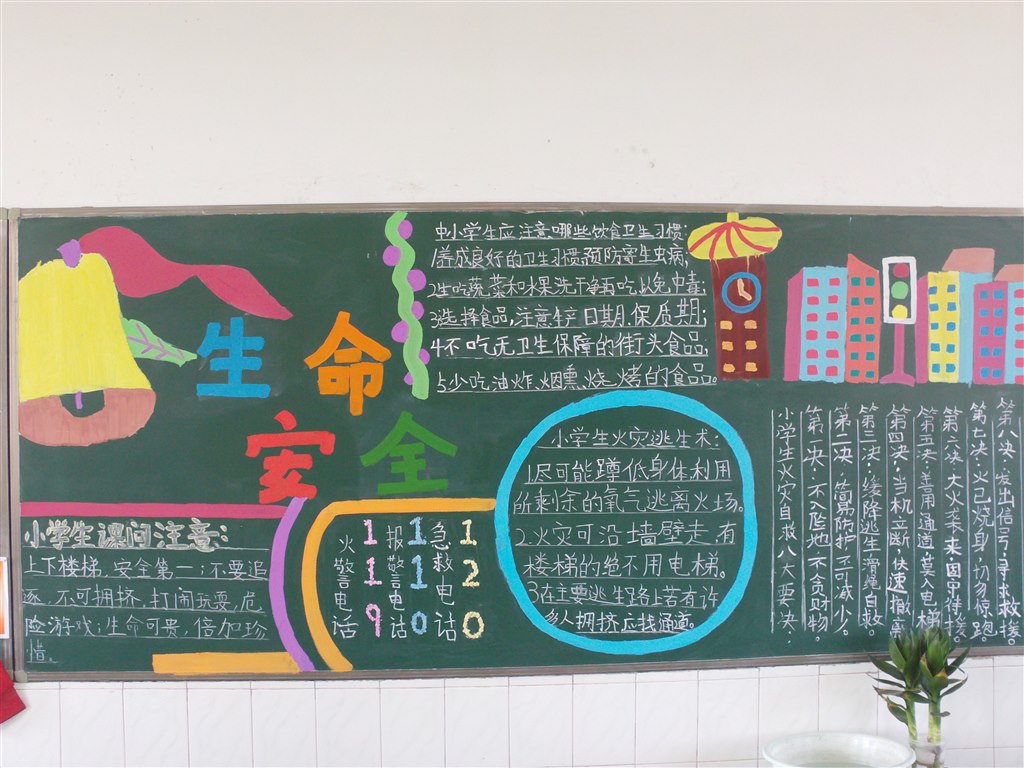 生命
安全
中小学生应注意哪些饮食卫生习惯:
1养成良好的卫生习惯,预防寄生虫病;
2生吃蔬菜和水果洗干净再吃,以免中毒;
3选择食品,注意生产日期,保质期;
4不吃无卫生保障的街头食品,
5少吃油炸,烟熏,烧烤的食品。
小学生课间注意:
上下楼梯,安全第一;不要追
逐,不可拥挤,打闹玩耍,危
险游戏;生命可贵,倍加珍
惜。
火警电话
119
报警电话
110
急救电话
120
小学生火灾逃生术:
1尽可能蹲低身体利用
所剩余的氧气逃离火场。
2.火灾可沿墙壁走,有
楼梯的绝不用电梯。
3在主要逃生路上若有许
多人拥挤应找通道。
小学生火灾自救八大要决:
第一决:不入险地,不贪财物。
第二决:简易防护,不可减少。
第三决:缓降逃生,滑绳自救。
第四决:当机立断,快速撤离
第五决:善用通道,莫入电梯
第六决:大火袭来,困守待援。
第七决:火已烧身,切勿惊跑。
第八决:发出信号,寻求救援。